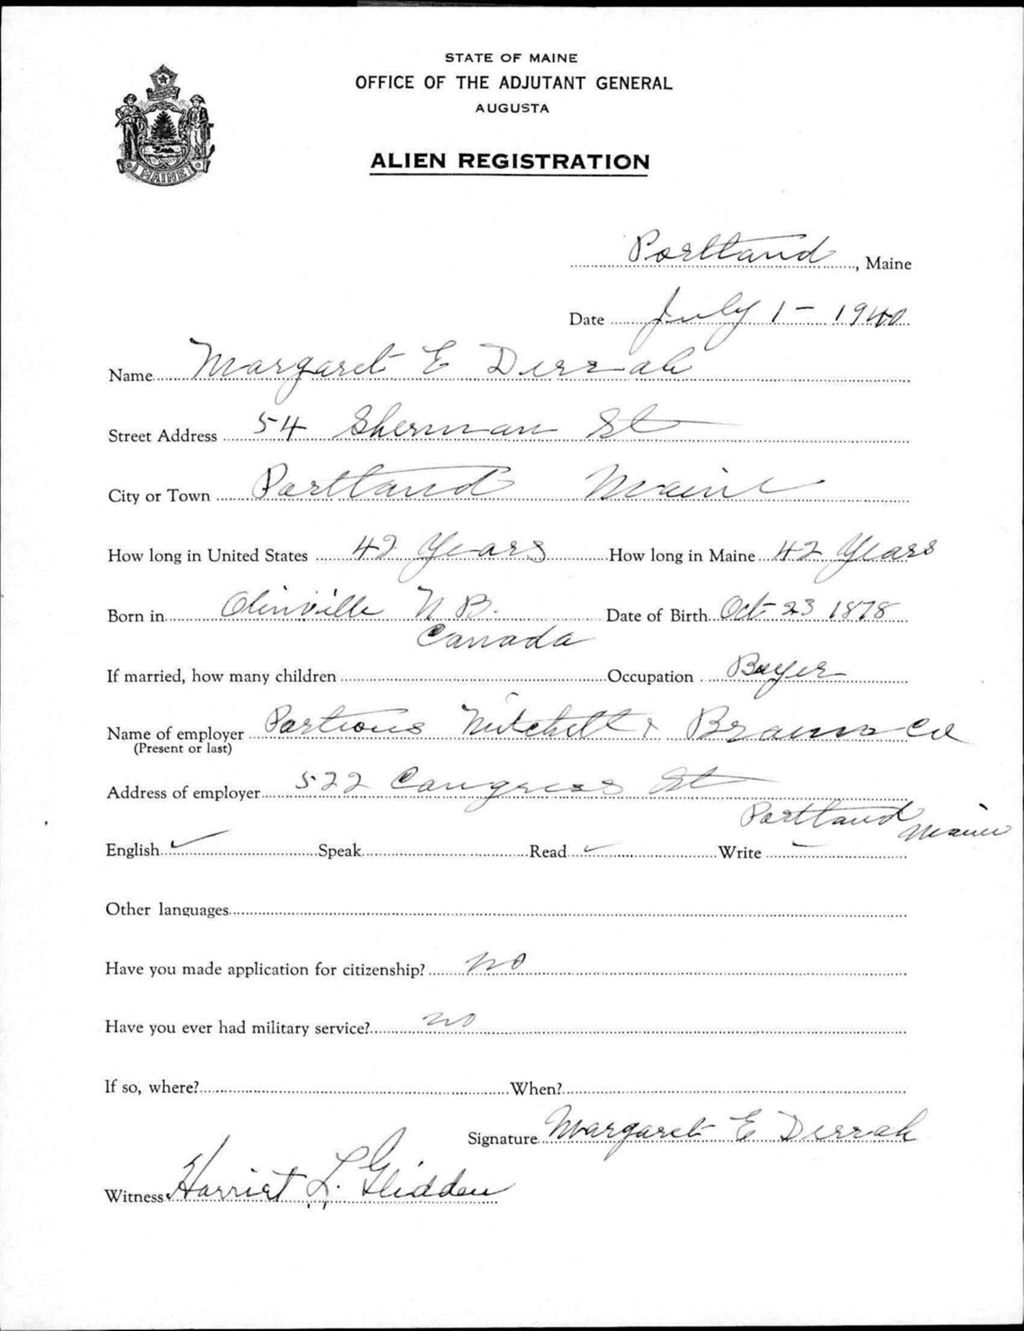 STATE OF MAINE
OFFICE OF THE ADJUTANT GENERAL
AUGUSTA
MAINE
ALIEN REGISTRATION
Portland, Maine
Date July 1 - 1940
Name Margaret E Derrah
Street Address 54 Sherman St
City or Town Portland Maine
How long in United States 42 Years How long in Maine 42 Years
Born in Olinville N.B. Date of Birth Oct 23 1878
Canada
If married, how many children Occupation Buyer
Name of employer Porteous Mitchell & Braun Co
(Present or last)
Address of employer 522 Congress St
Portland Maine
English ✓ Speak Read ✓ Write ✓
Other languages
Have you made application for citizenship? no
Have you ever had military service? no
If so, where? When?
Signature Margaret E Derrah
Witness Harriet L. Glidden